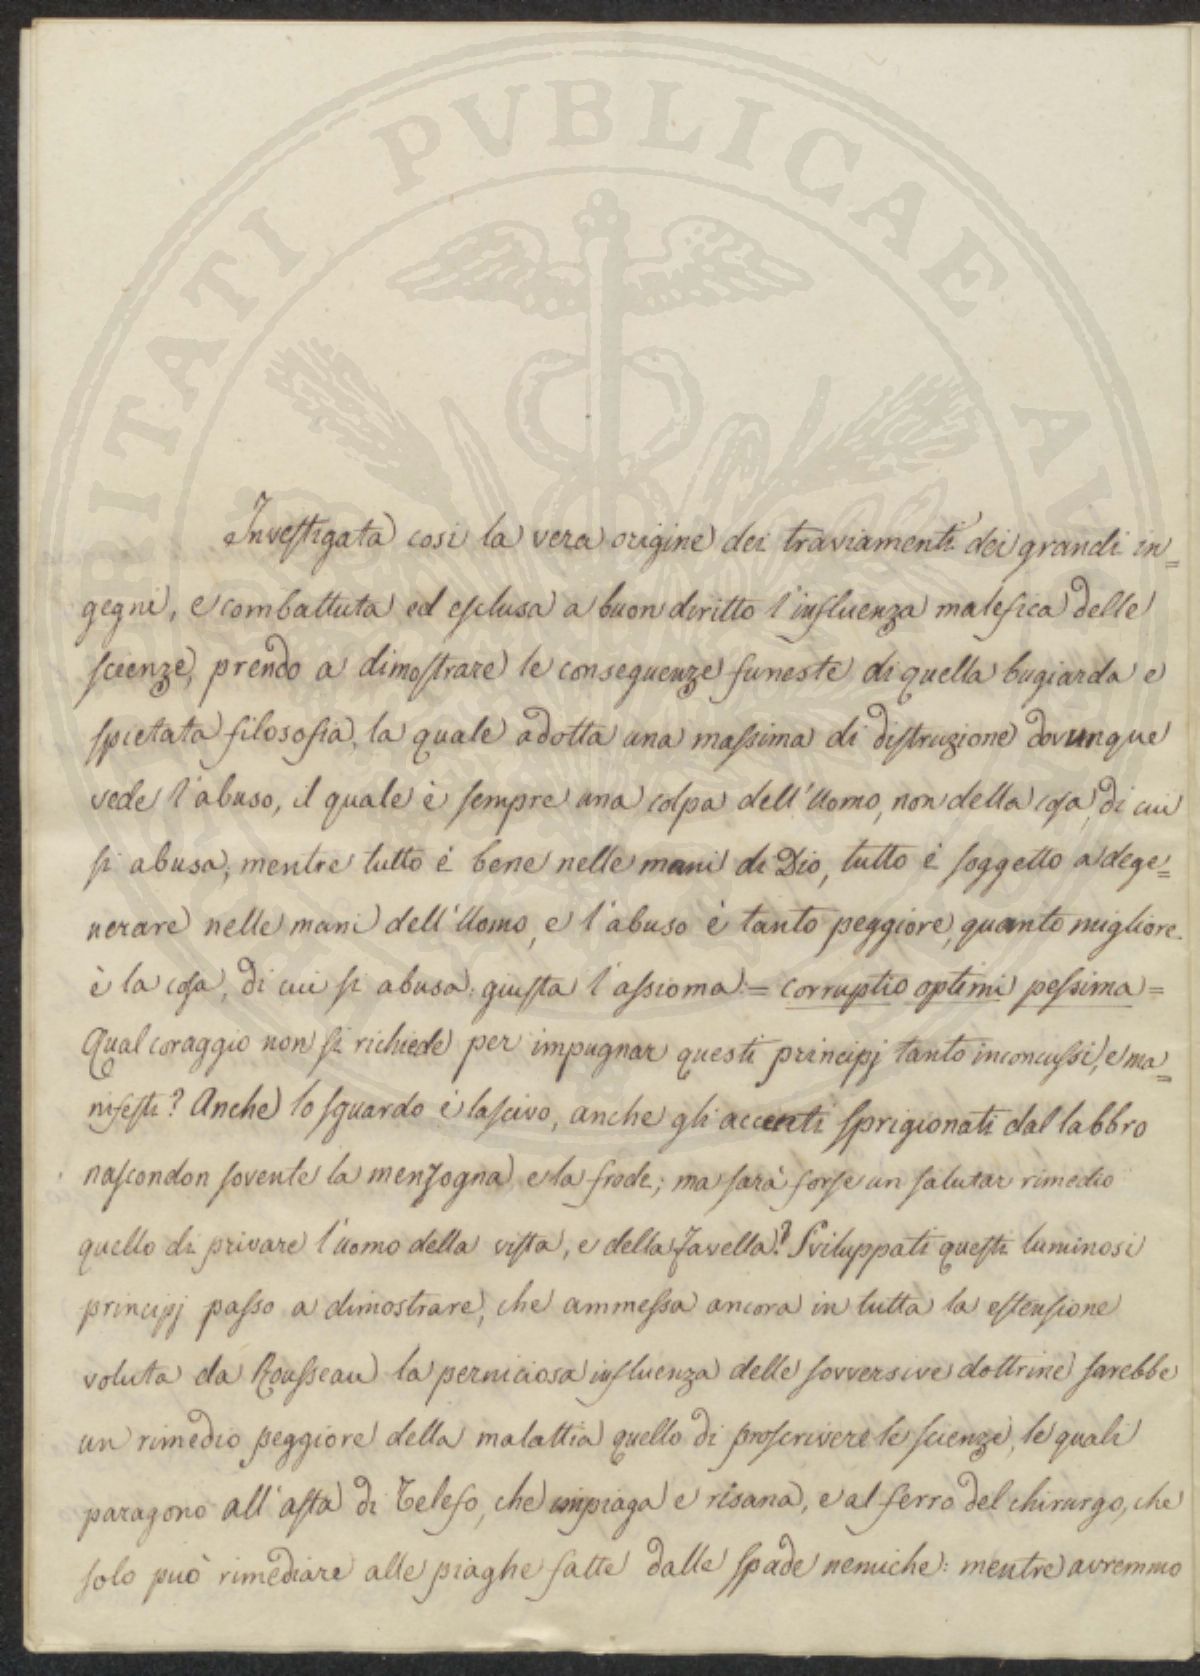 PVBLICAE
Investigata così la vera origine dei traviamenti dei grandi in=
gegni, e combattuta ed esclusa a buon diritto l'influenza malefica delle
scienze, prendo a dimostrare le conseguenze funeste di quella bugiarda e
spietata filosofia, la quale adotta una massima di distruzione dovunque
vede l'abuso, il quale è sempre una colpa dell'Uomo, non della cosa, di cui
si abusa; mentre tutto è bene nelle mani di Dio, tutto è soggetto a dege=
nerare nelle mani dell'Uomo, e l'abuso è tanto peggiore, quanto migliore
è la cosa, di cui si abusa: giusta l'assioma := corruptio optimi pessima =
Qual coraggio non si richiede per impugnar questi principj tanto inconcussi, e ma=
nifesti? Anche lo sguardo è lascivo, anche gli accenti sprigionati dal labbro
nascondon sovente la menzogna e la frode; ma sarà forse un salutar rimedio
quello di privare l'uomo della vista, e della favella? Sviluppati questi luminosi
principj passo a dimostrare, che ammessa ancora in tutta la estensione
voluta da Rousseau la perniciosa influenza delle sovversive dottrine sarebbe
un rimedio peggiore della malattia quello di proscrivere le scienze, le quali
paragono all'asta di Telefo, che impiaga e risana, e al ferro del chirurgo, che
solo può rimediare alle piaghe fatte dalle spade nemiche: mentre avremmo